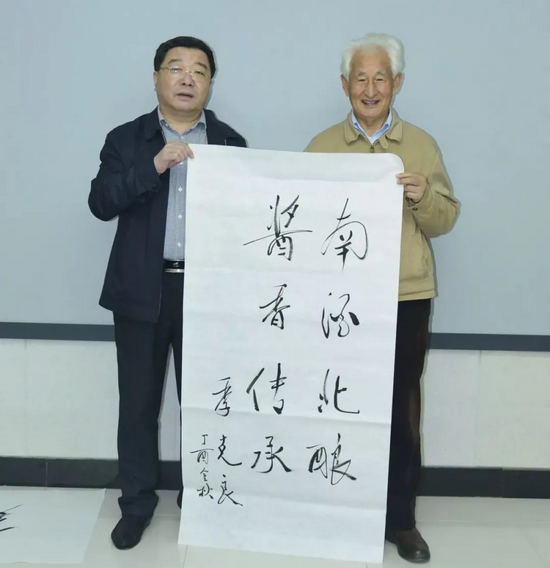 南酒北酿
醬香传承
季克良
丁酉金秋